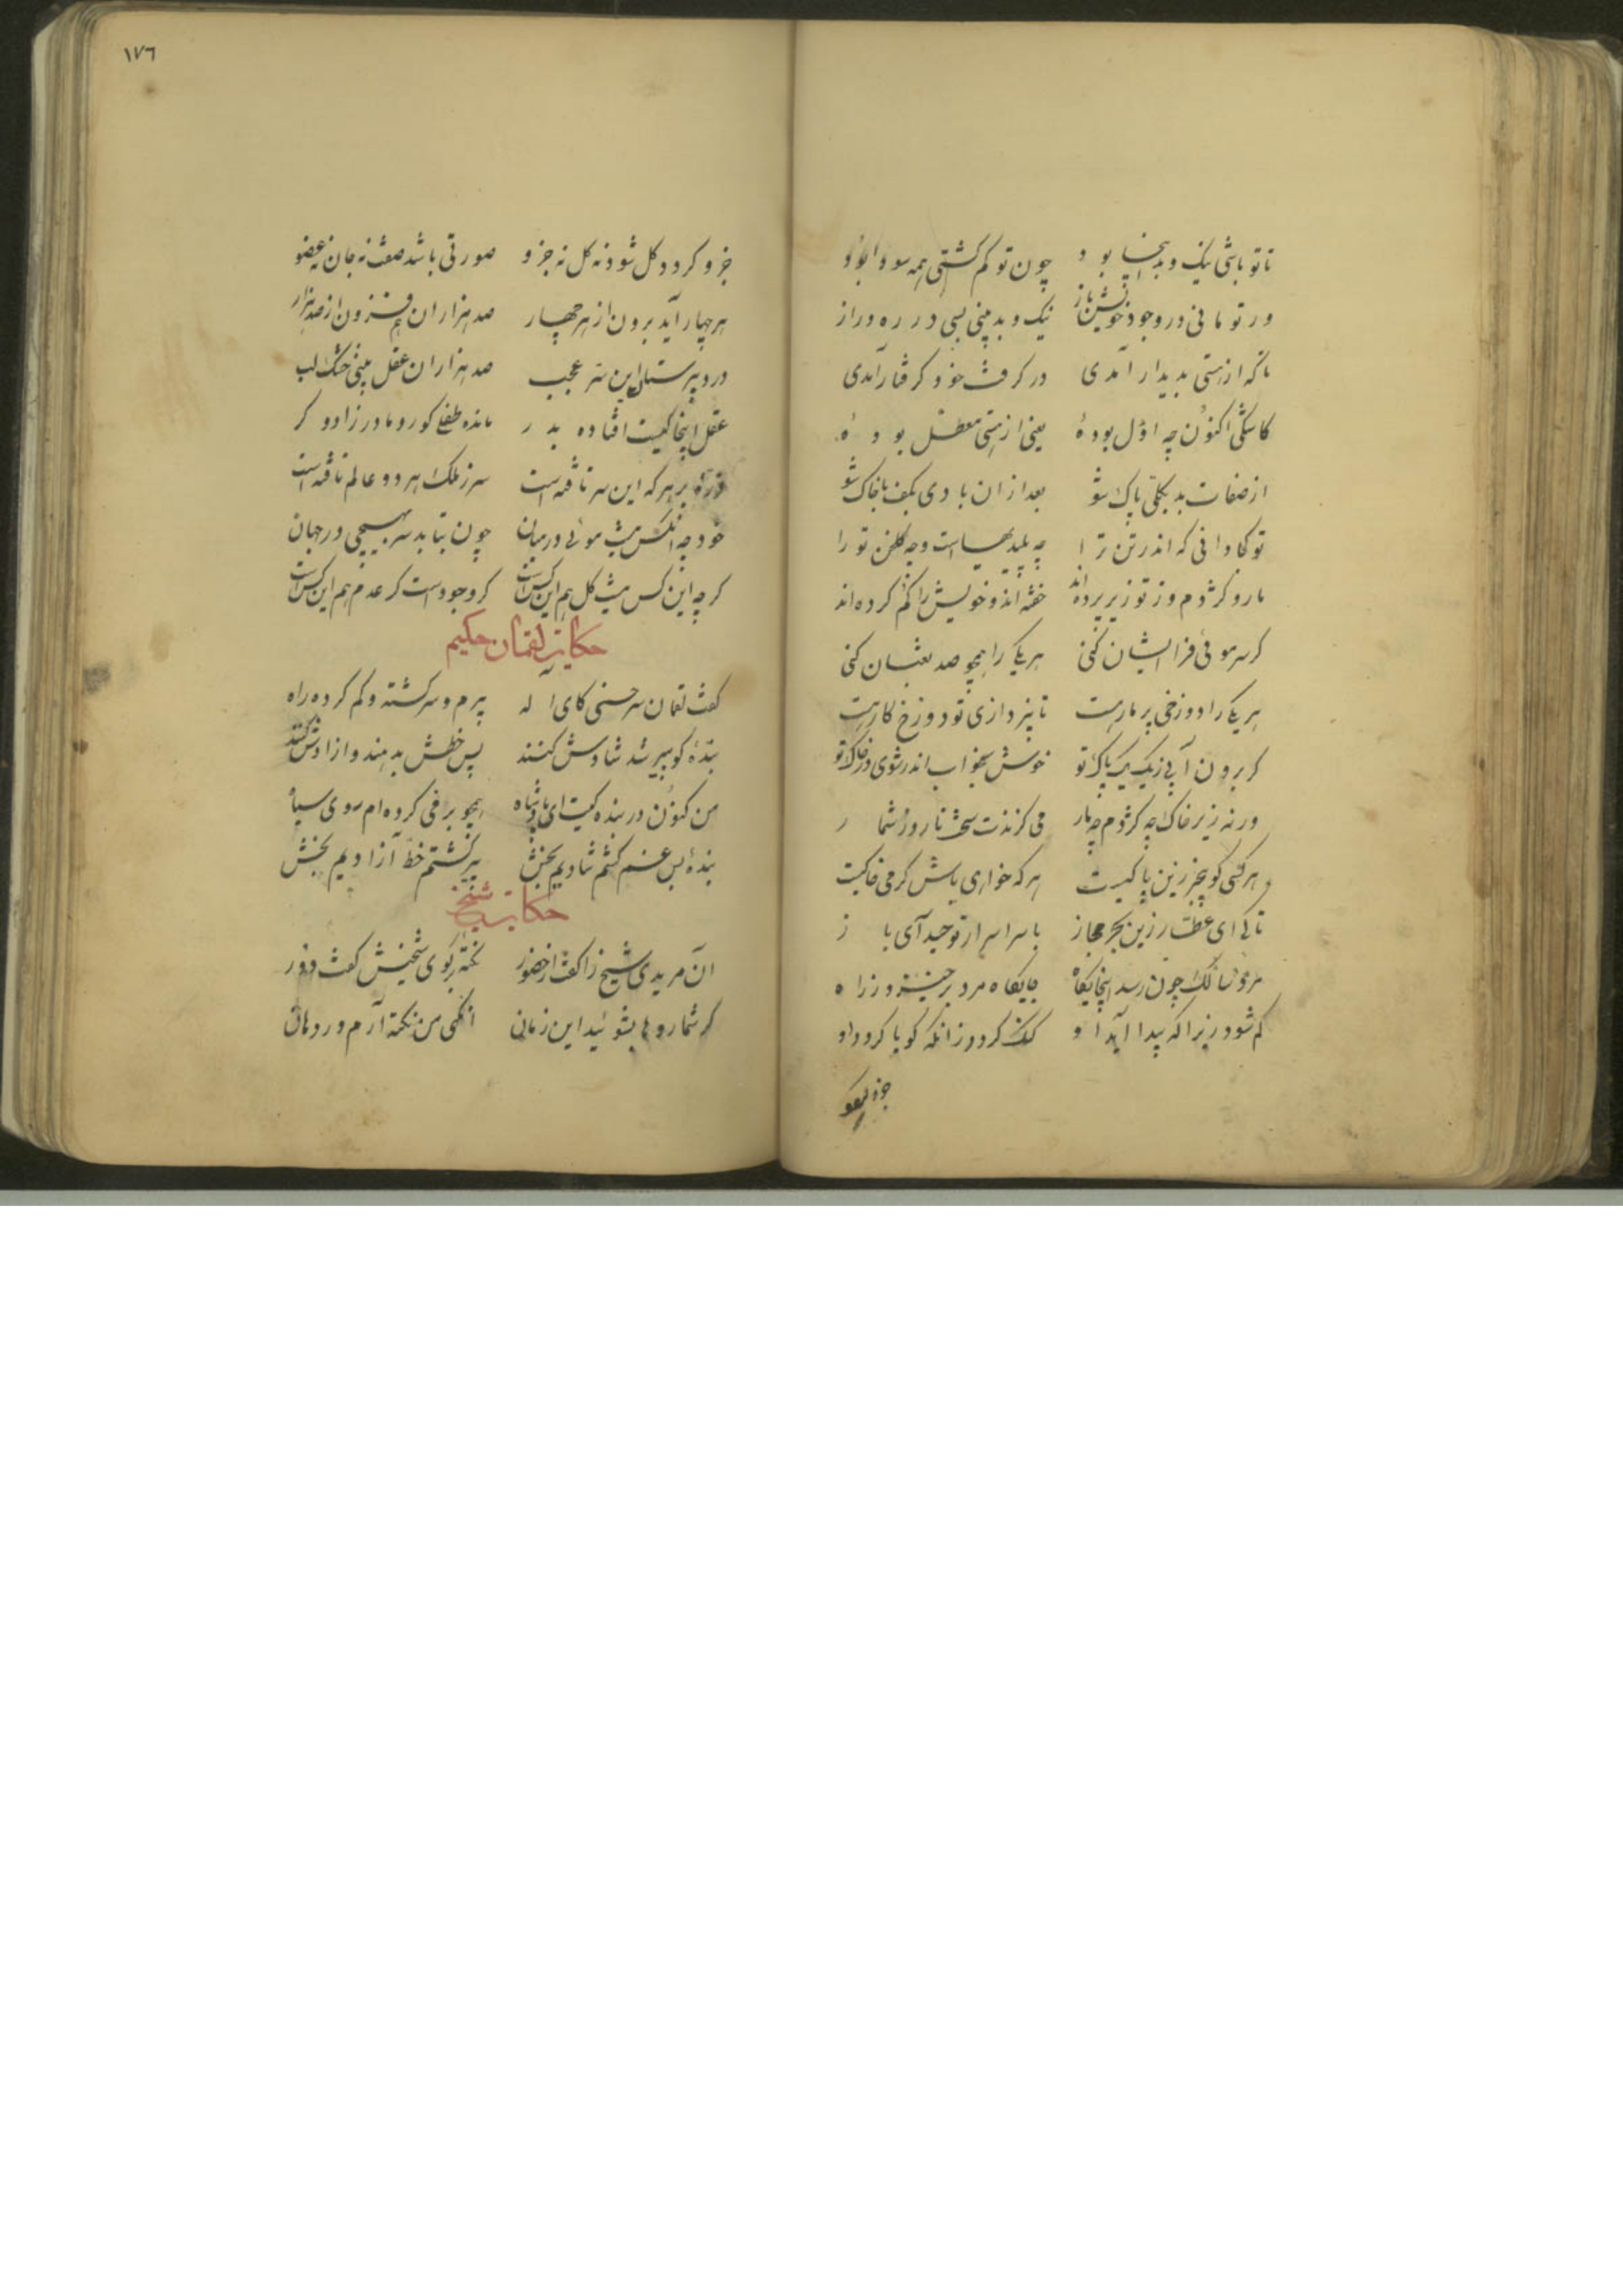 تا تو باشی نیک و بد اینجا بود چون تو کم کشتی همه سودا بود
ور تو مانی در وجود خویش باز نیک و بد بینی بسی در ره دراز
تا که از هستی بدیدار آمدی در کرفت خود کرفتار آمدی
کاشکی اکنون چه اوّل بودهٔ یعنی از هستی معطّل بودهٔ
از صفات بد بکلّی پاک شو بعد از ان بادی بکف با خاک شو
تو کجا دانی که اندر تن ترا چه پلیدیهاست و چه کلخن تو را
مار و کژدم وز تو زیر پرده‌اند خفته‌اند و خویش را کم کرده‌اند
کر سر موئی فرا ایشان کنی هر یکی را همچو صد ثعبان کنی
هر یکی را دوزخی پر مار هست تا بپردازی تو دوزخ کار هست
کر برون آیی ز یک یک پاک تو خوش بخواب اندر شوی در خاک تو
ورنه زیر خاک چه کژدم چه مار می کزندت سخت تا روز شمار
هر کسی کو بیخبر زین پاکیست هر که خواهی باش کرمی خاکیست
تا کی ای عطّار زین بحر مجاز با سر اسرار توحید آی باز
مرد سالک چون رسد اینجایکاه جایکاه مرد برخیزد ز راه
کم شود زیرا که پیدا آید او کنک کردد زانکه کویا کردد او
۱۷٦
جزو کردد کل شود نه کل نه جزو صورتی باشد صفت نه جان نه عضو
هر چهار آید برون از هر چهار صد هزاران هم فزون از صد هزار
در دبیرستان این سرّ عجب صد هزاران عقل بینی خشک لب
عقل اینجا کیست افتاده بدر مانده طفلی کور و مادرزاد و کر
ذرهٔ بر هر که این سر تافته است سر ز ملک هر دو عالم تافته است
خود چه انکس نیست موئی در میان چون نتابد سر بهیچی در جهان
کر چه این کس نیست کل هم این کس است کر وجود است کر عدم هم این کس است
حکایت لقمان حکیم
کفت لقمان سرخسی کای آله پیرم و سرکشته و کم کرده راه
بندهٔ کو پیر شد شادش کنند پس خطش بدهند و ازادش کنند
من کنون در بنده کیت ای پادشاه همچو برفی کرده‌ام موی سیاه
بندهٔ بس غم کشم شادیم بخش پیر کشتم خطّ آزادیم بخش
حکایت شیخ
آن مریدی شیخ را کفت از حضور نکته بر کوی شیخش کفت دور
کر شما روها بشوئید این زمان انکهی من نکته آرم در میان